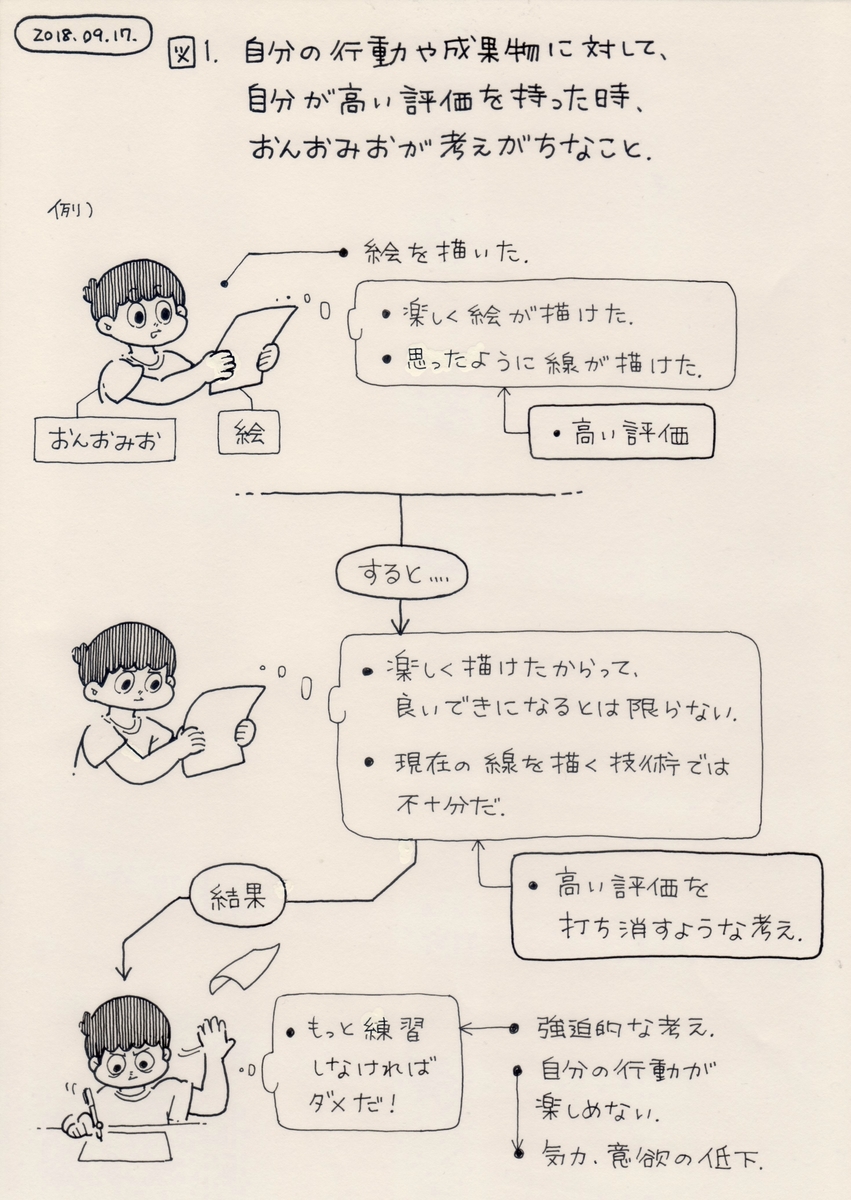 2018.09.17.
図1. 自分の行動や成果物に対して、
自分が高い評価を持った時、
おんおみおが考えがちなこと.
例)
絵を描いた.
• 楽しく絵が描けた.
• 思ったように線が描けた.
• 高い評価
おんおみお
絵
すると....
• 楽しく描けたからって、
良いできになるとは限らない.
• 現在の線を描く技術では
不十分だ.
• 高い評価を
打ち消すような考え.
結果
• もっと練習
しなければ
ダメだ!
• 強迫的な考え.
• 自分の行動が
楽しめない.
• 気力、意欲の低下.